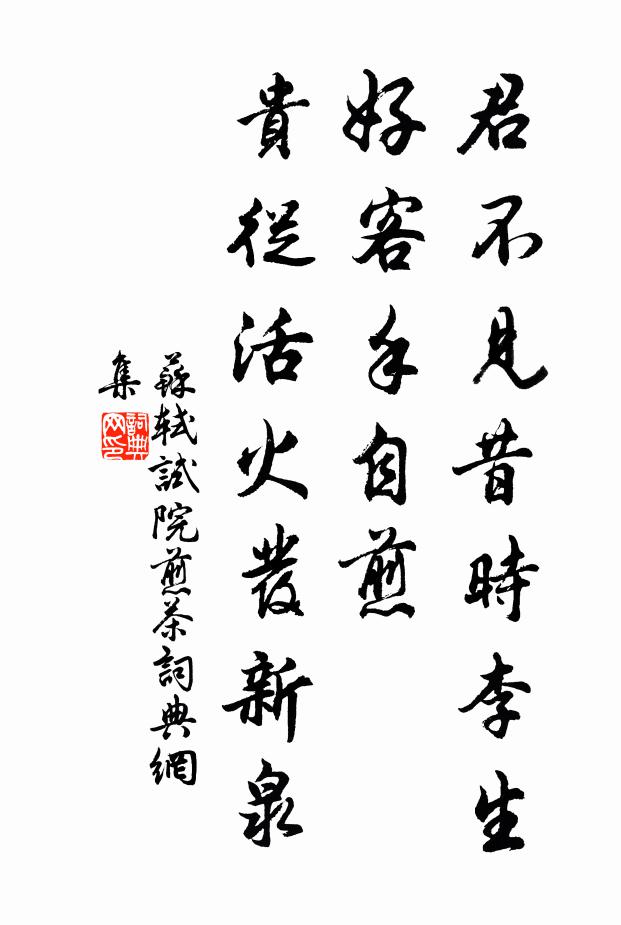 君不見昔時李生
好客手自煎
貴從活火發新泉
蘇軾試院煎茶詞典網
集
詞典
网印